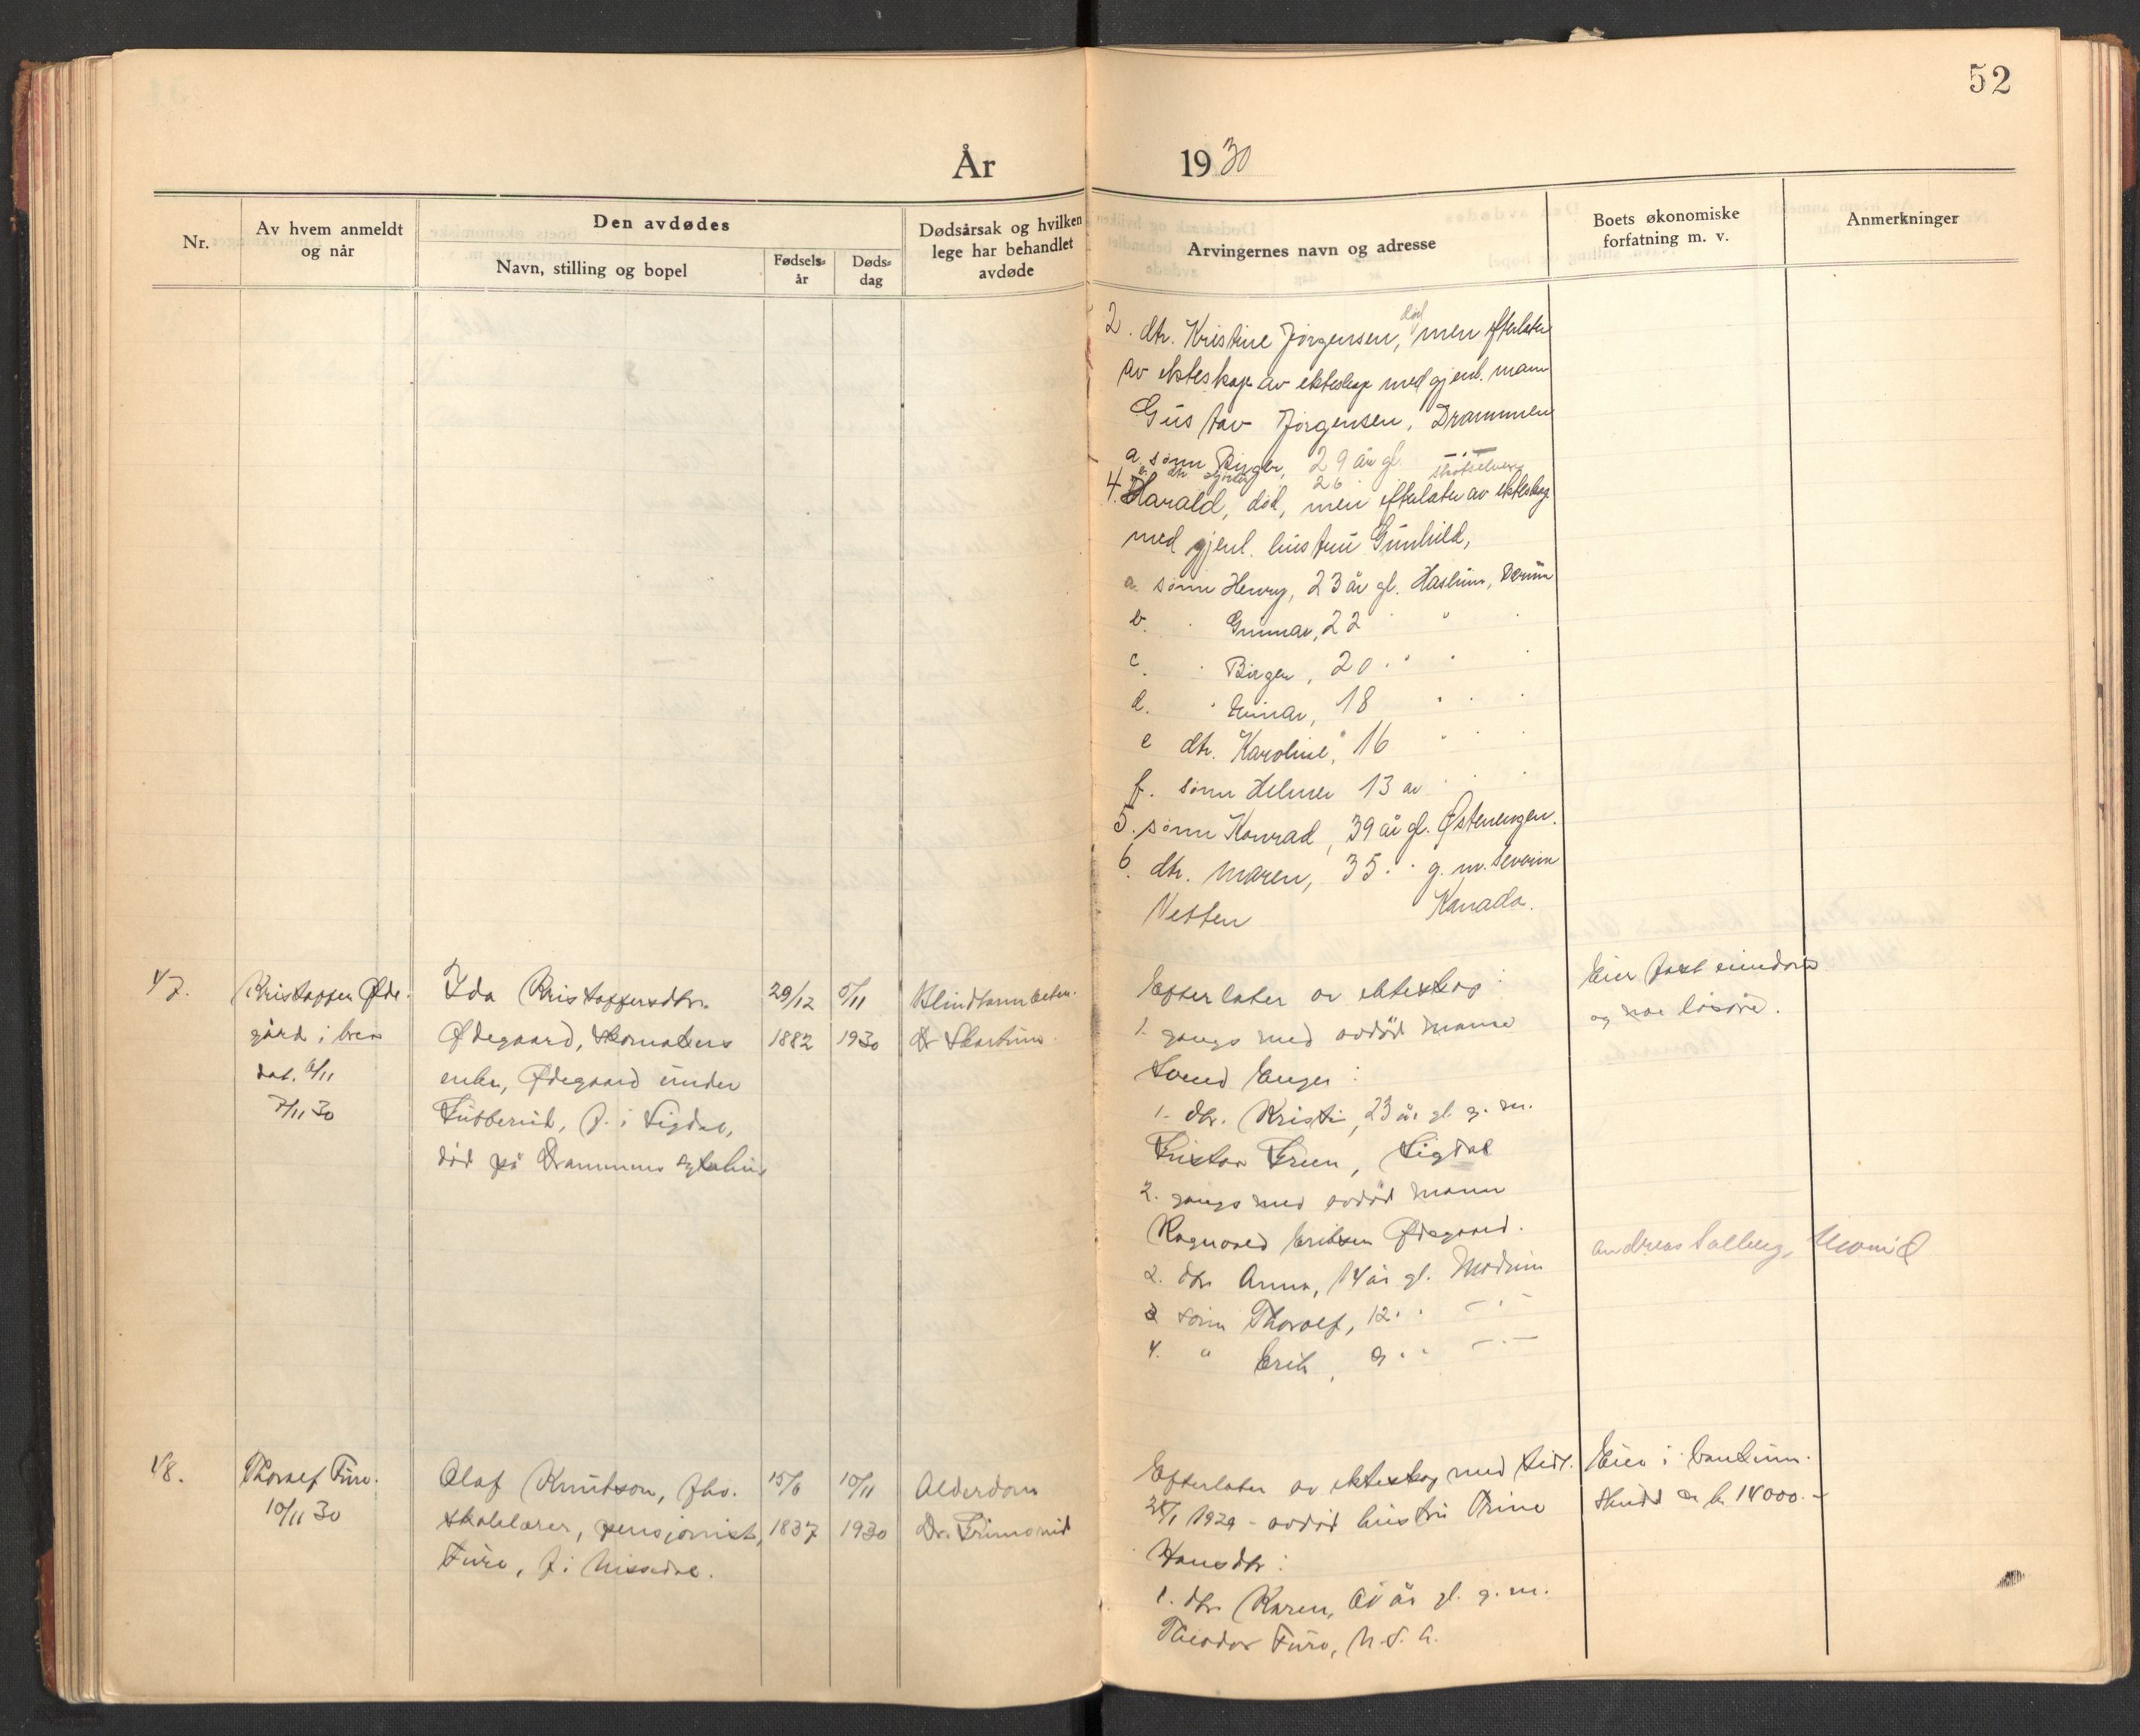 52
År 1930
Nr.
Av hvem anmeldt
og når
Den avdødes
Navn, stilling og bopel
Fødsels-
år
Døds-
dag
Dødsårsak og hvilken
lege har behandlet
avdøde
Arvingernes navn og adresse
Boets økonomiske
forfatning m. v.
Anmerkninger
død
2. dtr. Kristine Jørgensen, men efterlater
av ekteskap av ekteskap med gjenl. mann
Gustav Jørgensen, Drammen
a. sønn Birger, 29 år gl.
b. dtr. 26
4. Harald, død, men efterlater av ekteskap
med gjenl. hustru Gunhild,
a. sønn Henry, 23 år gl. Haslum, Bærum
b. " Gunnar, 22 " "
c. " Birger, 20 " "
d. " Einar, 18 " "
e dtr. Karoline, 16 " "
f. sønn Helmer 13 år " "
5. sønn Konrad, 39 år gl. Østenengen.
6. dtr. Maren, 35 " " g. m. Severin
Vetten Kanada.
47.
Kristoffer Øde-
gård i brev
dat. 6/11
7/11 30
Ida Kristoffersdtr.
Ødegaard, skomakers
enke, Ødegaard under
Tubberud, f. i Sigdal,
død på Drammens sykehus
29/12
1882
5/11
1930
Blindtarmbeten.
Dr
Efterlater av ekteskap:
1. gangs med avdød mann
Svend Enger:
1. dtr. Kristi, 23 år gl. g. m.
Kristian Green, Sigdal
2. gangs med avdød mann
Ragnvald Eriksen Ødegaard.
2. dtr Anna, 14 år gl. Modum
3 sønn Thoralf, 12 " " — " —
4. " Erik, 9 " " — " —
Eier fast eiendom
og noe løsøre.
Andreas Solberg,
48.
Thoralf Furo.
10/11 30
Olaf Knutson, fhv.
skolelærer, pensjonist,
Furo, f. i Nissedal.
15/6
1837
10/11
1930
Alderdom
Dr.
Efterlater av ekteskap med tidl.
28/1 1929 - avdød hustru Trine
Hansdtr:
1. dtr. Karen, år gl. g. m.
Theodor Furo, U. S. A.
Eier i bankinn-
skudd ca kr 14000.-